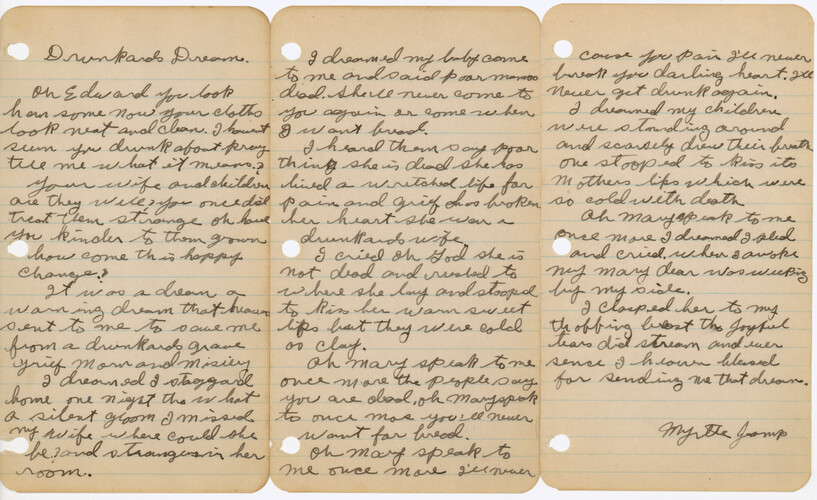 Drunkards Dream.
Oh Edward you look
han some now your cloths
look neat and clean. I haven't
seen you drunk about pray
tell me what it means?
Your wife and children
are they well? you once did
treat them strange oh have
you kinder to them grown
how come this happy
change?
It was a dream a
warning dream that heaven
sent to me to save me
from a drunkards grave
grief Morn and Misiey
I dreamed I staggard
home one night tho what
a silent gloom I missed
my wife where could she
be? and strangers in her
room.
I dreamed my baby come
to me and said poor mamas
diad. She'll never come to
you again or come when
I want bread.
I heard them say poor
thing she is dead she has
lived a wretched life for
pain and grief has broken
her heart she was a
drunkards wife,
I cried Oh God she is
not dead and rushed to
where she lay and stooped
to kiss her warm sweet
lips but they were cold
as clay.
Oh Mary speak to me
once more the people say
you are dead, oh Mary speak
to once more you'll never
want for bread.
Oh Mary speak to
me once more I'll never
cause you pain I'll never
break you darling heart. I'll
never get drunk again.
I dreamed my children
were standing around
and scarcely drew their breath
one stooped to kiss its
Mothers lips which were
so cold with death
Oh Mary speak to me
once more I dreamed I sled
and cried. when I awoke
my Mary dear was weeking
by my side.
I clasped her to my
throbbing brest the joyful
tears did stream and ever
sence I heaven blessed
for sending me that dream.
Myrtle